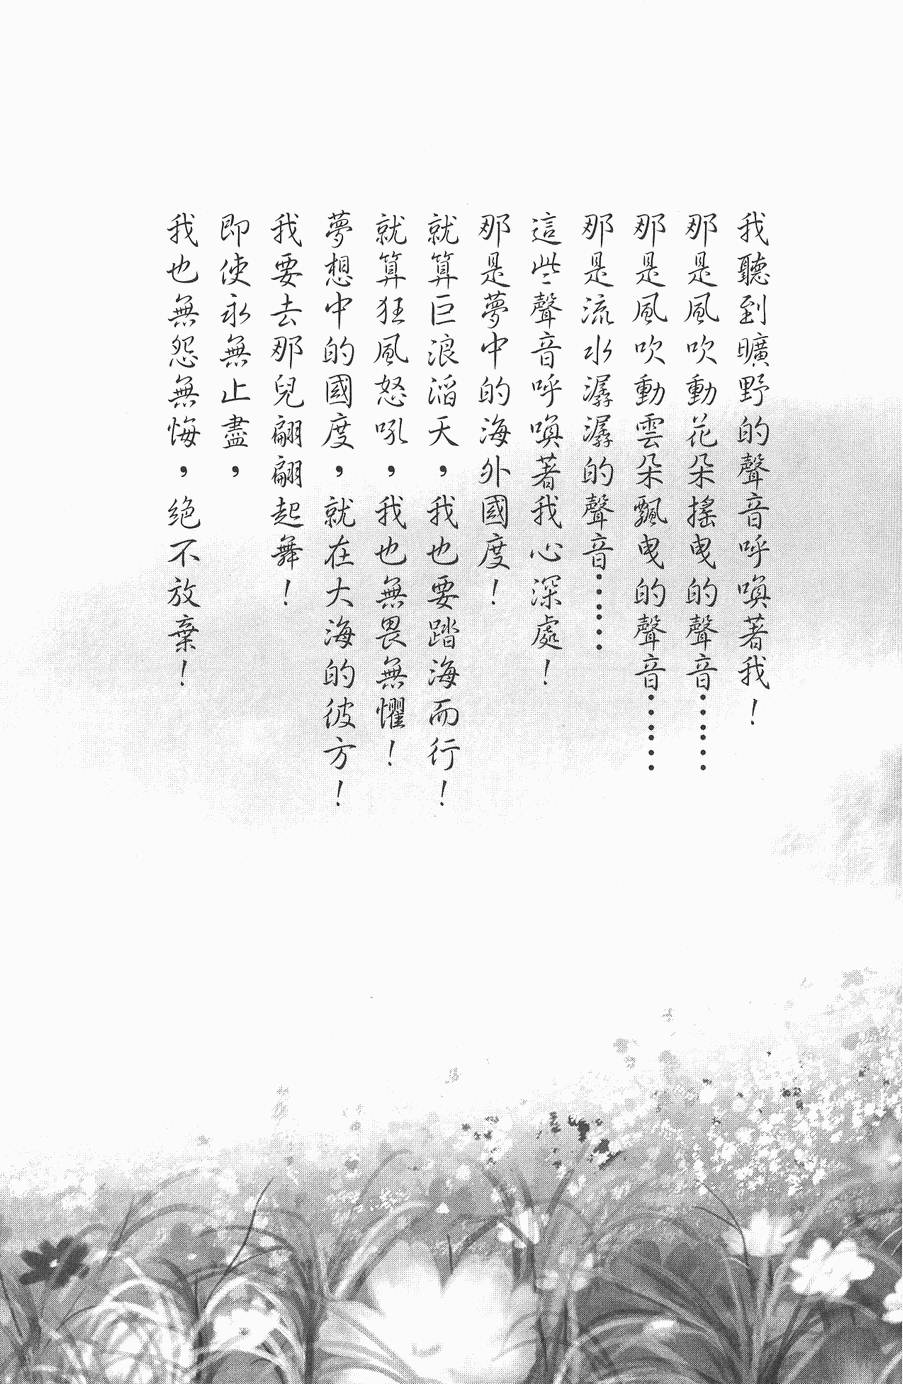 我聽到曠野的聲音呼喚著我！
那是風吹動花朵搖曳的聲音⋯⋯
那是風吹動雲朵飄曳的聲音⋯⋯
那是流水潺潺的聲音⋯⋯
這些聲音呼喚著我心深處！
那是夢中的海外國度！
就算巨浪滔天，我也要踏海而行！
就算狂風怒吼，我也無畏無懼！
夢想中的國度，就在大海的彼方！
我要去那兒翩翩起舞！
即使永無止盡，
我也無怨無悔，絕不放棄！